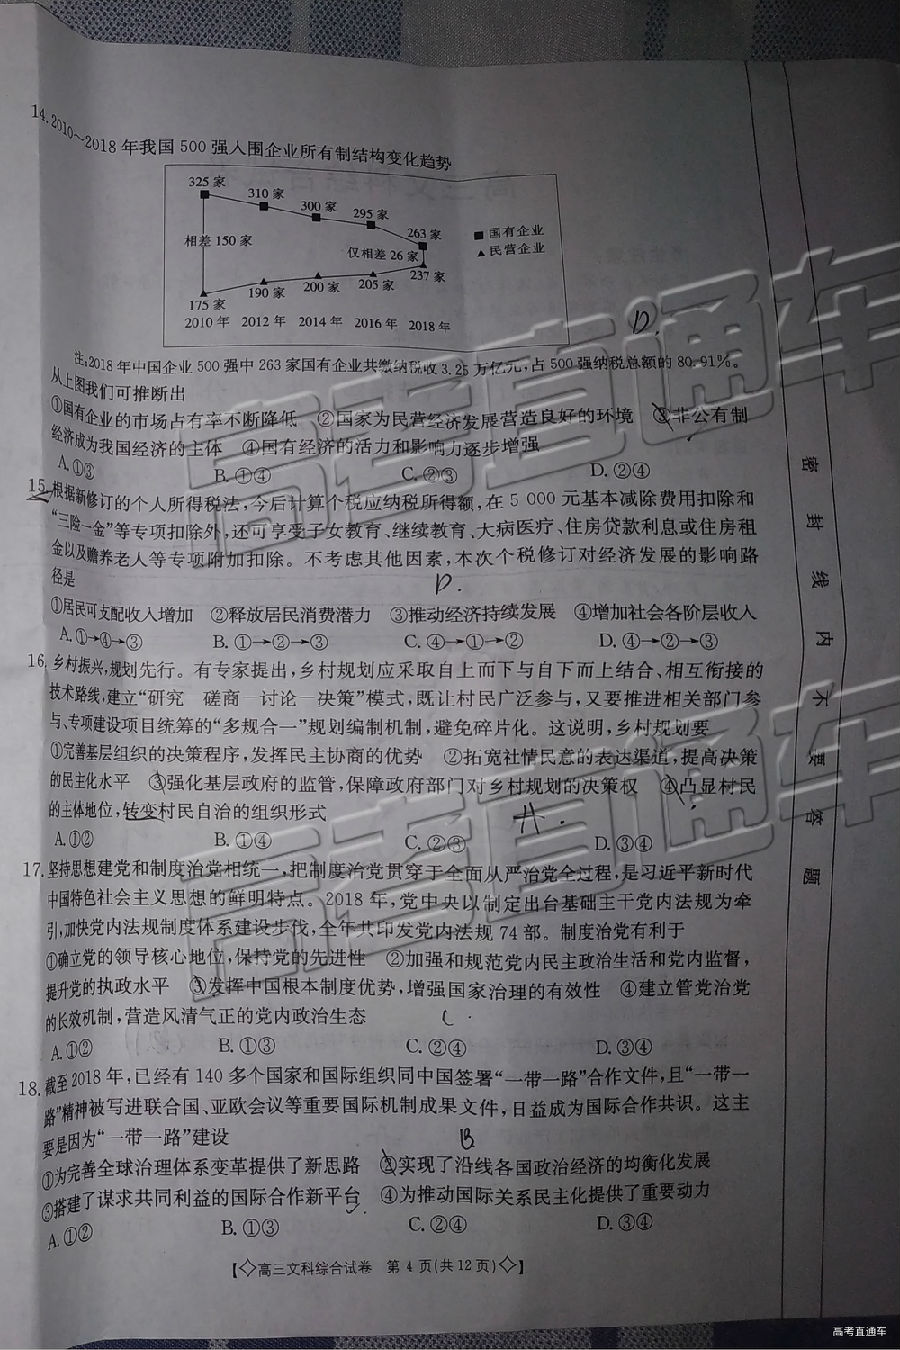 14.2010～2018年我国500强入围企业所有制结构变化趋势
325家
310家
300家
295家
263家
相差150家
仅相差26家
国有企业
民营企业
175家
190家
200家
205家
237家
2010年 2012年 2014年 2016年 2018年
D.
注:2018年中国企业500强中263家国有企业共缴纳税收3.25万亿元,占500强纳税总额的80.91%。
从上图我们可推断出
①国有企业的市场占有率不断降低 ②国家为民营经济发展营造良好的环境 ③非公有制
经济成为我国经济的主体 ④国有经济的活力和影响力逐步增强
A.①③ B.①④ C.②③ D.②④
15.根据新修订的个人所得税法,今后计算个税应纳税所得额,在5 000元基本减除费用扣除和
“三险一金”等专项扣除外,还可享受子女教育、继续教育、大病医疗、住房贷款利息或住房租
金以及赡养老人等专项附加扣除。不考虑其他因素,本次个税修订对经济发展的影响路
径是
D.
①居民可支配收入增加 ②释放居民消费潜力 ③推动经济持续发展 ④增加社会各阶层收入
A.①→④→③ B.①→②→③ C.④→①→② D.④→②→③
16.乡村振兴,规划先行。有专家提出,乡村规划应采取自上而下与自下而上结合、相互衔接的
技术路线,建立“研究—磋商—讨论—决策”模式,既让村民广泛参与,又要推进相关部门参
与、专项建设项目统筹的“多规合一”规划编制机制,避免碎片化。这说明,乡村规划要
①完善基层组织的决策程序,发挥民主协商的优势 ②拓宽社情民意的表达渠道,提高决策
的民主化水平 ③强化基层政府的监管,保障政府部门对乡村规划的决策权 ④凸显村民
的主体地位,转变村民自治的组织形式
A.
A.①② B.①④ C.②③ D.③④
17.坚持思想建党和制度治党相统一,把制度治党贯穿于全面从严治党全过程,是习近平新时代
中国特色社会主义思想的鲜明特点。2018年,党中央以制定出台基础主干党内法规为牵
引,加快党内法规制度体系建设步伐,全年共印发党内法规74部。制度治党有利于
①确立党的领导核心地位,保持党的先进性 ②加强和规范党内民主政治生活和党内监督,
提升党的执政水平 ③发挥中国根本制度优势,增强国家治理的有效性 ④建立管党治党
的长效机制,营造风清气正的党内政治生态
C.
A.①② B.①③ C.②④ D.③④
18.截至2018年,已经有140多个国家和国际组织同中国签署“一带一路”合作文件,且“一带一
路”精神被写进联合国、亚欧会议等重要国际机制成果文件,日益成为国际合作共识。这主
要是因为“一带一路”建设
B
①为完善全球治理体系变革提供了新思路 ②实现了沿线各国政治经济的均衡化发展
③搭建了谋求共同利益的国际合作新平台 ④为推动国际关系民主化提供了重要动力
A.①② B.①③ C.②④ D.③④
【◇高三文科综合试卷 第4页(共12页)◇】
密封线内不要答题
高考直通车
高考直通车
高考直通车